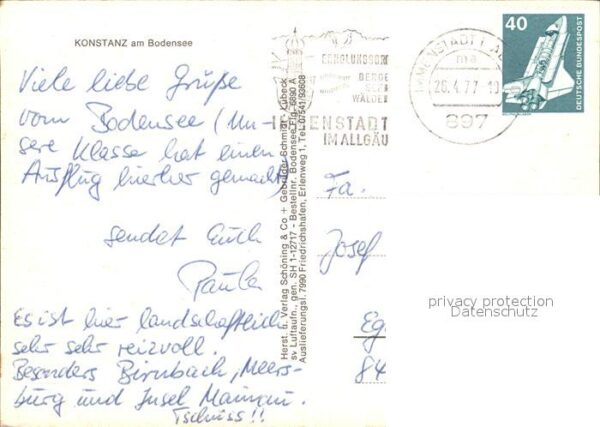 KONSTANZ am Bodensee
Viele liebe Grüße
vom Bodensee (Un-
sere Klasse hat einen
Ausflug hierher gemacht)
sendet Euch
Paula
Es ist hier landschaftlich
sehr sehr reizvoll.
Besonders Birnbach, Meers-
burg und Insel Mainau.
Tschüss!!
Herst. u. Verlag Schöning & Co + Gebrüder Schmidt, Lübeck
sv Luftaufn., gen. SH 1-12717 - Bestellnr. Bodensee Flg 6890 A
Auslieferungsl. 7990 Friedrichshafen, Erlenweg 1, Tel. 07541/93608
ERHOLUNGSORT
BERGE
SEEN
WÄLDER
IMMENSTADT
IM ALLGÄU
IMMENSTADT
ma
26.4.77
897
40
DEUTSCHE BUNDESPOST
Fa.
Josef
Eg
84
privacy protection
Datenschutz